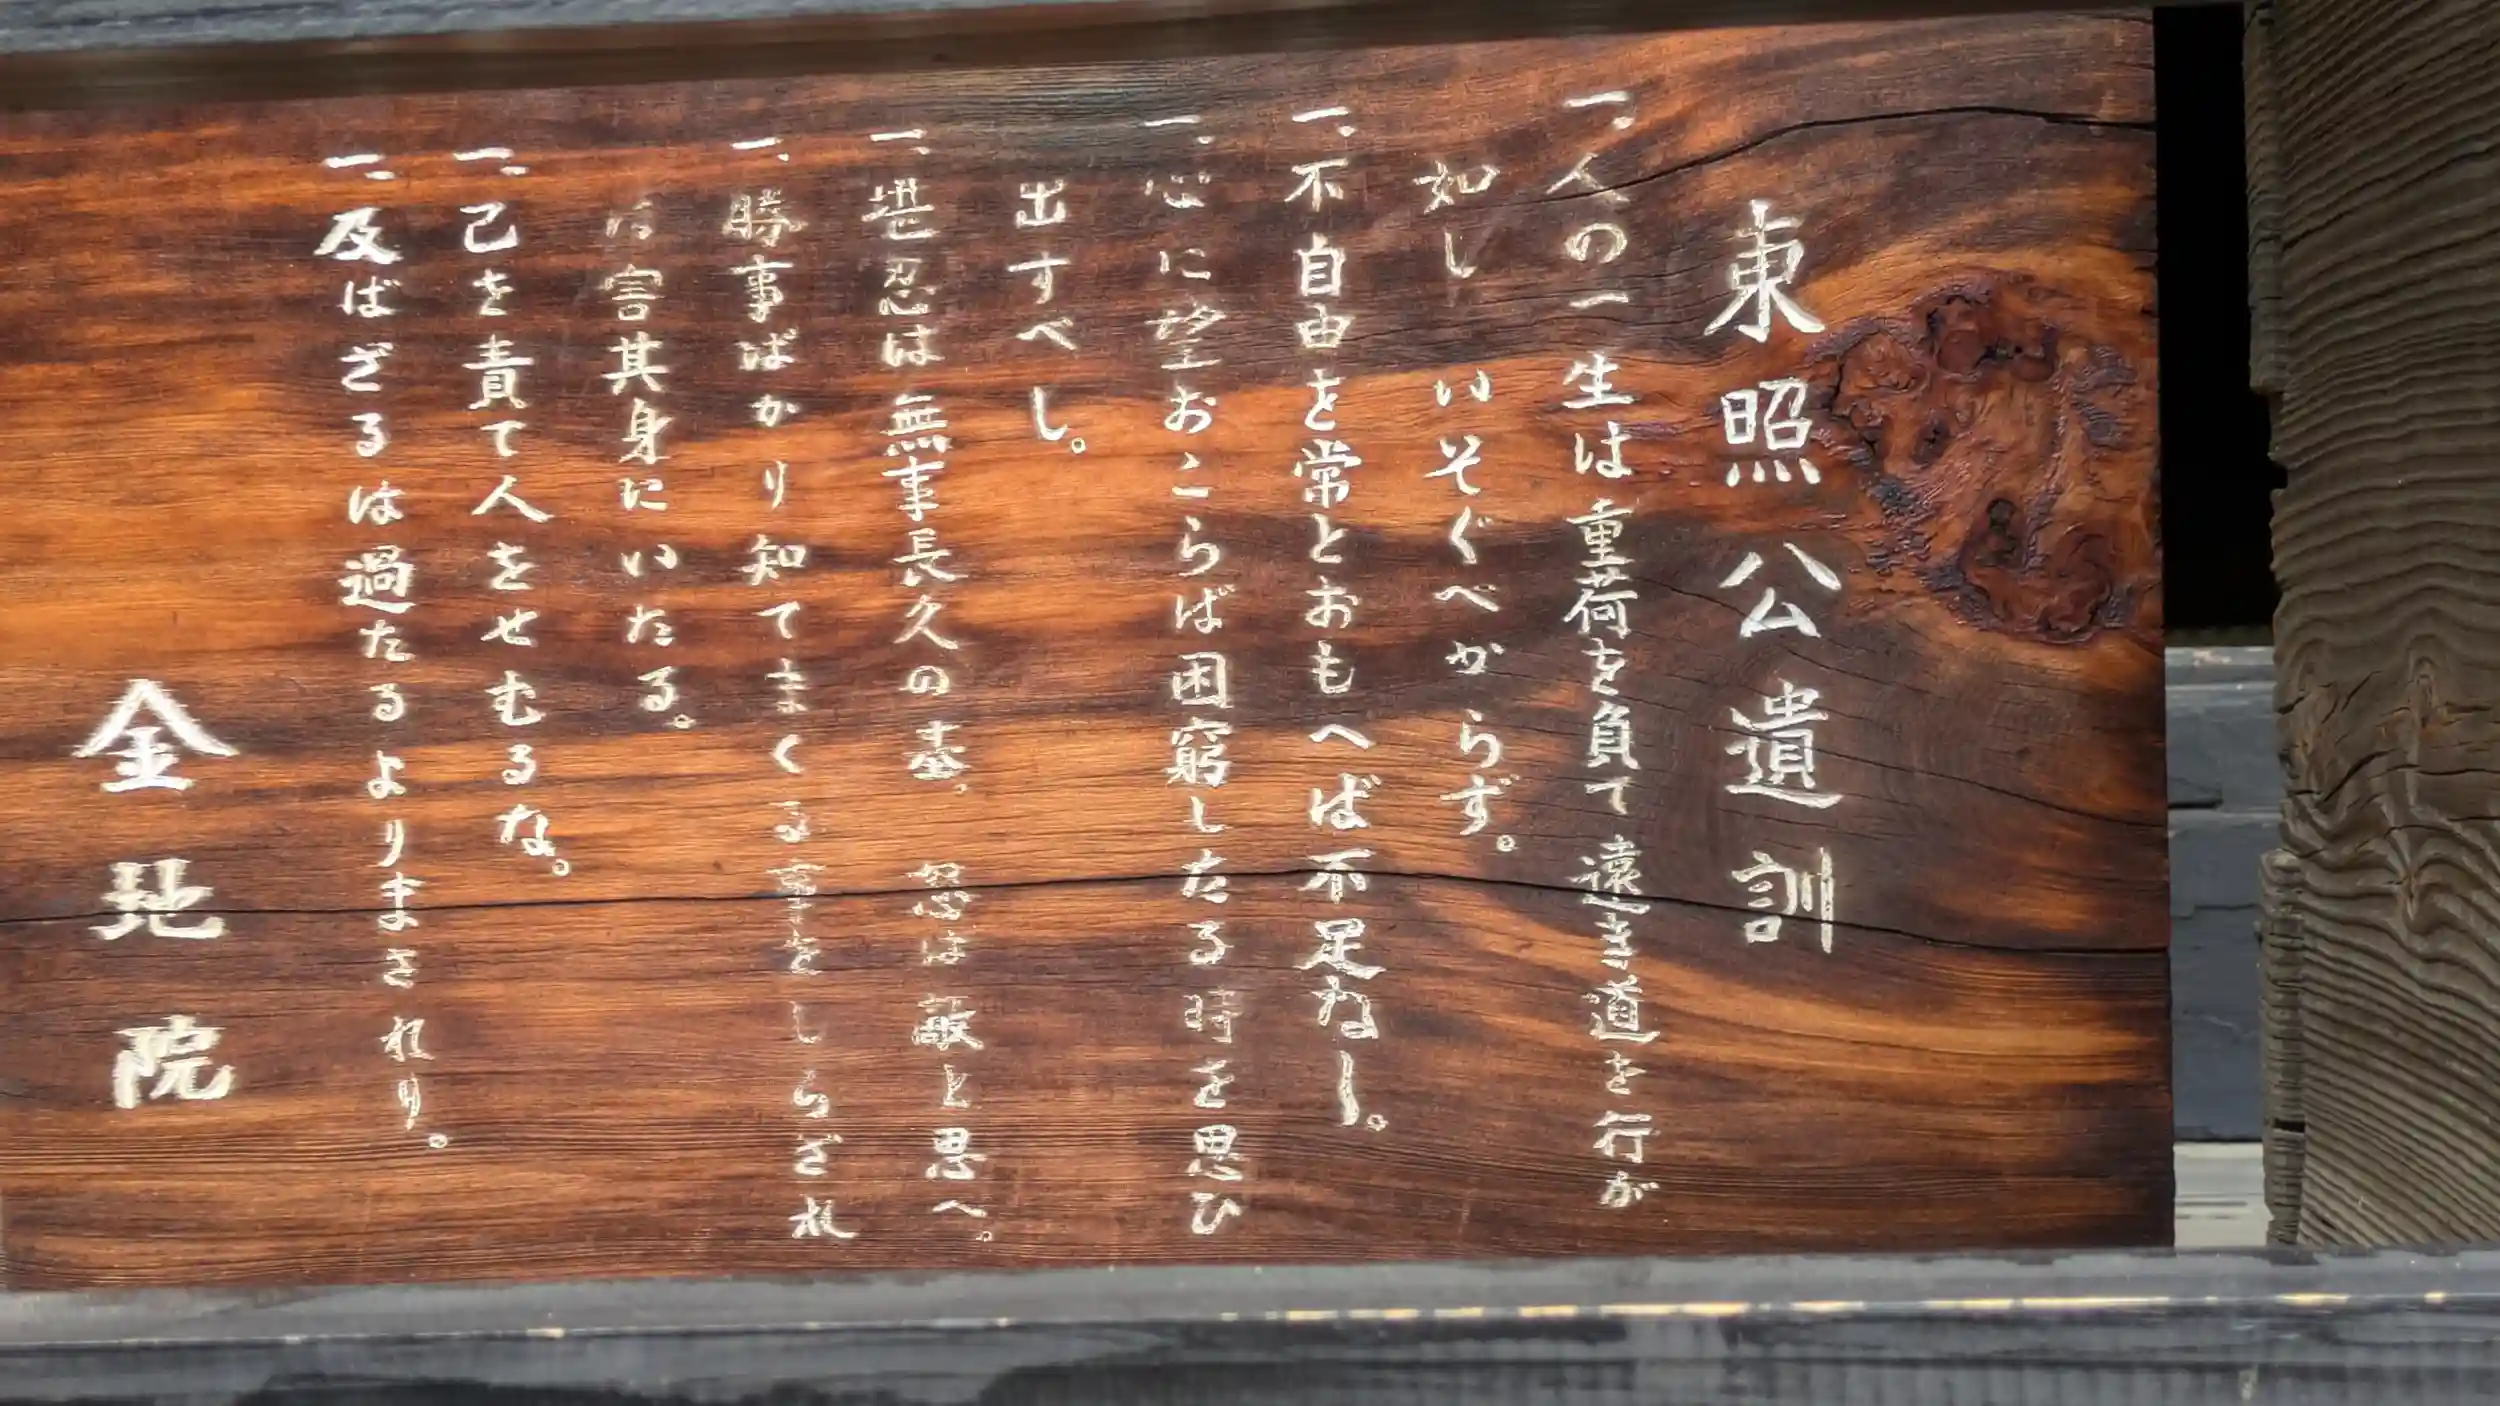 東照公遺訓
一、人の一生は重荷を負て遠き道を行が
如し いそぐべからず。
一、不自由を常とおもへば不足なし。
一、心に望おこらば困窮したる時を思ひ
出すべし。
一、堪忍は無事長久の基、 怒は敵と思へ。
一、勝事ばかり知てまくる事をしらざれ
は害其身にいたる。
一、己を責て人をせむるな。
一、及ばざるは過たるよりまされり。
金地院